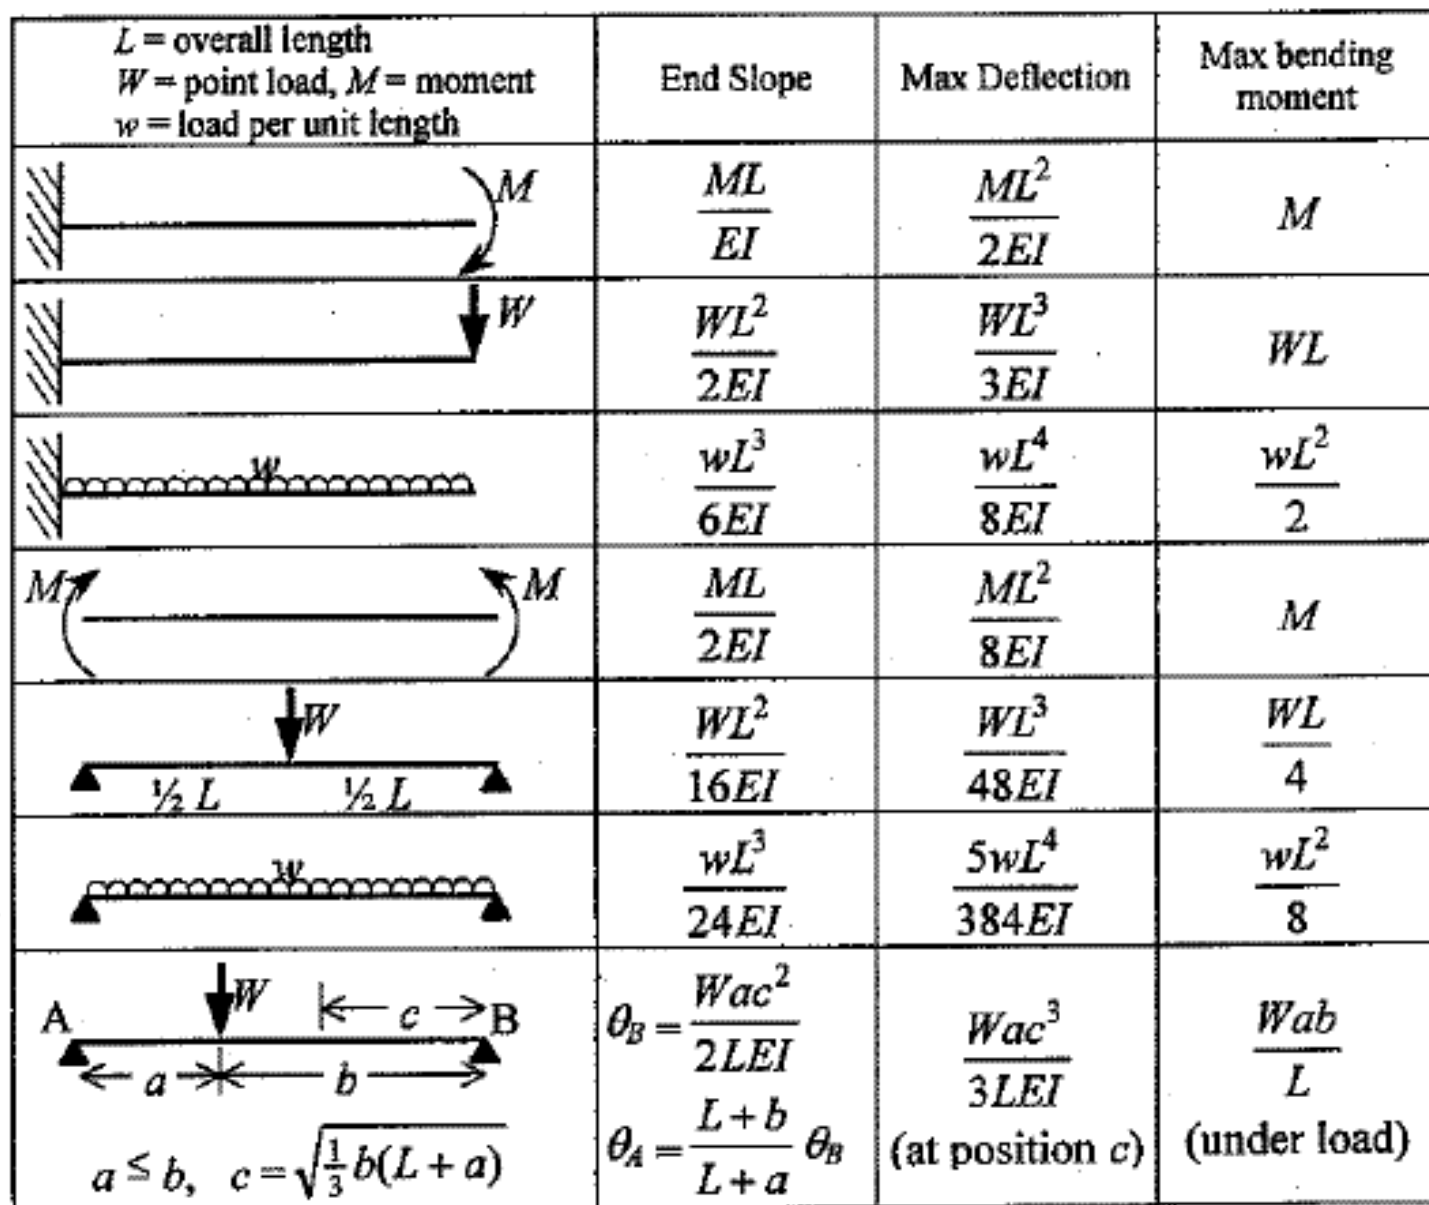 L = overall length
W = point load, M = moment
w = load per unit length
End Slope
Max Deflection
Max bending
moment
M
ML/EI
ML²/2EI
M
W
WL²/2EI
WL³/3EI
WL
w
wL³/6EI
wL⁴/8EI
wL²/2
M M
ML/2EI
ML²/8EI
M
W
½ L ½ L
WL²/16EI
WL³/48EI
WL/4
w
wL³/24EI
5wL⁴/384EI
wL²/8
W
A c B
a b
a ≤ b, c = √(⅓ b(L + a))
θ_B = Wac²/2LEI
θ_A = (L + b)/(L + a) θ_B
Wac³/3LEI
(at position c)
Wab/L
(under load)